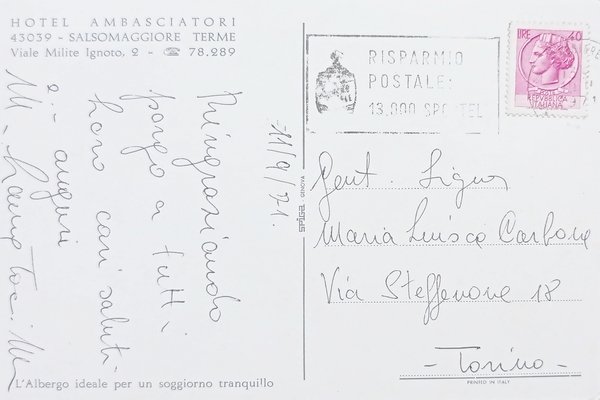 HOTEL AMBASCIATORI
43039 - SALSOMAGGIORE TERME
Viale Milite Ignoto, 2 - ☎ 78.289
Ringraziando
porgo a tutti
loro cari saluti
e auguri
11/9/71.
L'Albergo ideale per un soggiorno tranquillo
spiga GENOVA
RISPARMIO
POSTALE:
13.000 SPORTELLI
LIRE 40
POSTE
REPVBBLICA
ITALIANA
Gent. Signor
Maria Luisa Carbone
Via Steffenone 18
- Torino -
PRINTED IN ITALY